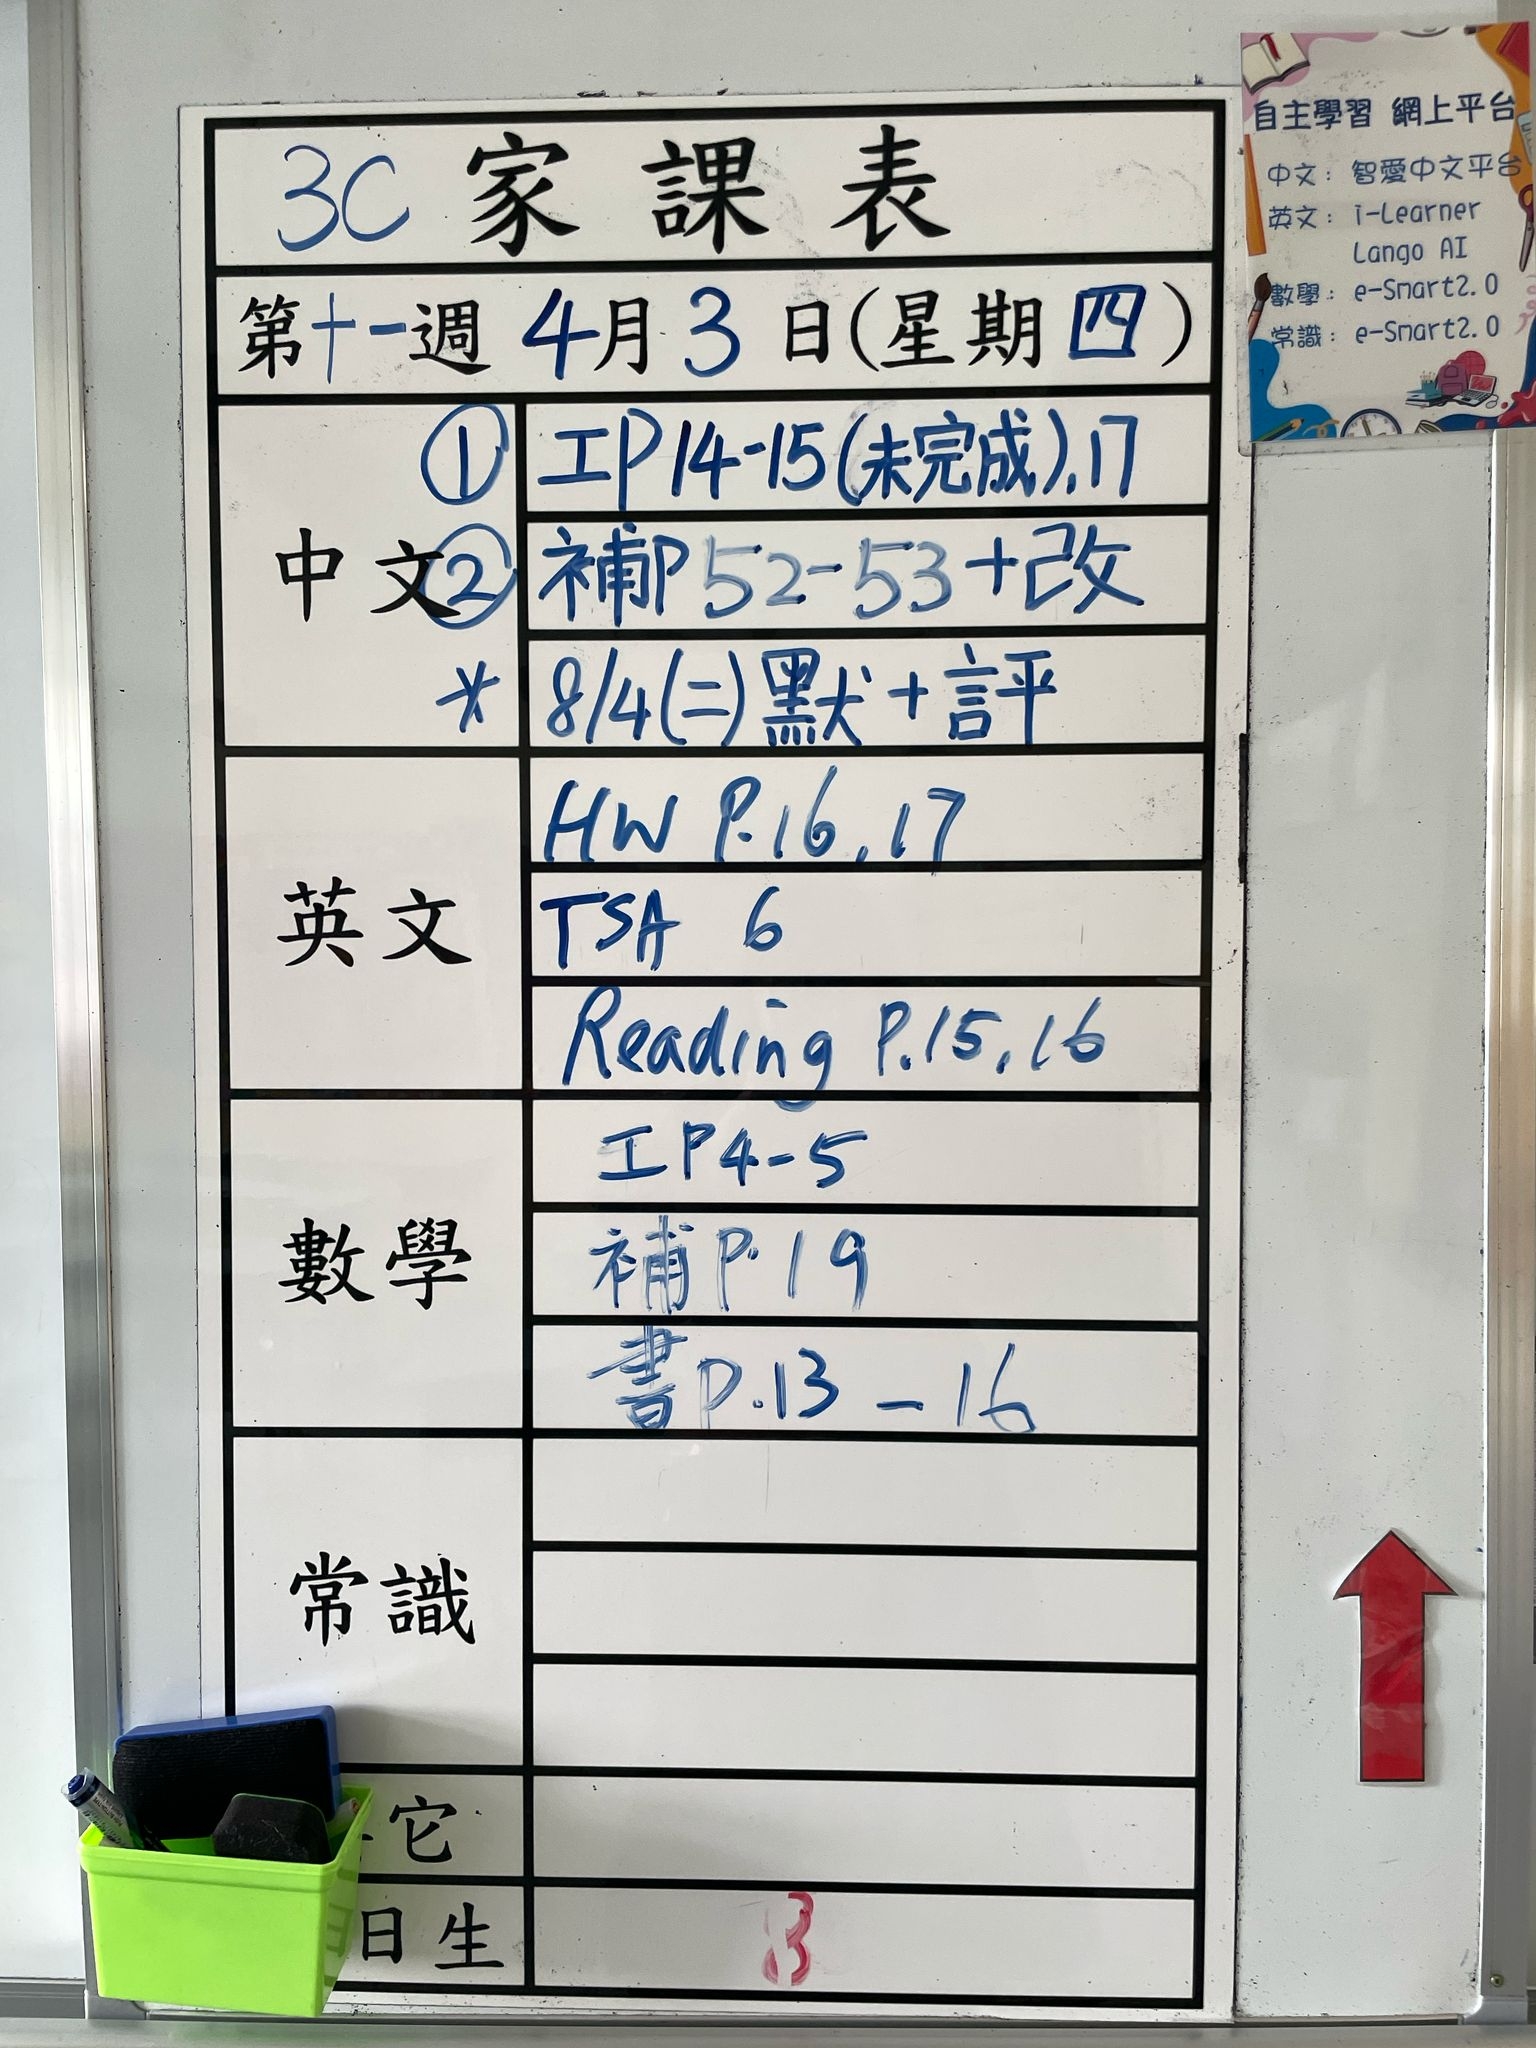 3C 家課表
第十一週 4月3日(星期四)
中文
① 工P14-15(未完成),17
② 補P52-53+改
* 8/4(二)默+評
英文
HW P.16,17
TSA 6
Reading P.15,16
數學
工P4-5
補P.19
書P.13-16
常識
它
日生
自主學習 網上平台
中文: 智愛中文平台
英文: i-Learner
Lango AI
數學: e-Smart2.0
常識: e-Smart2.0